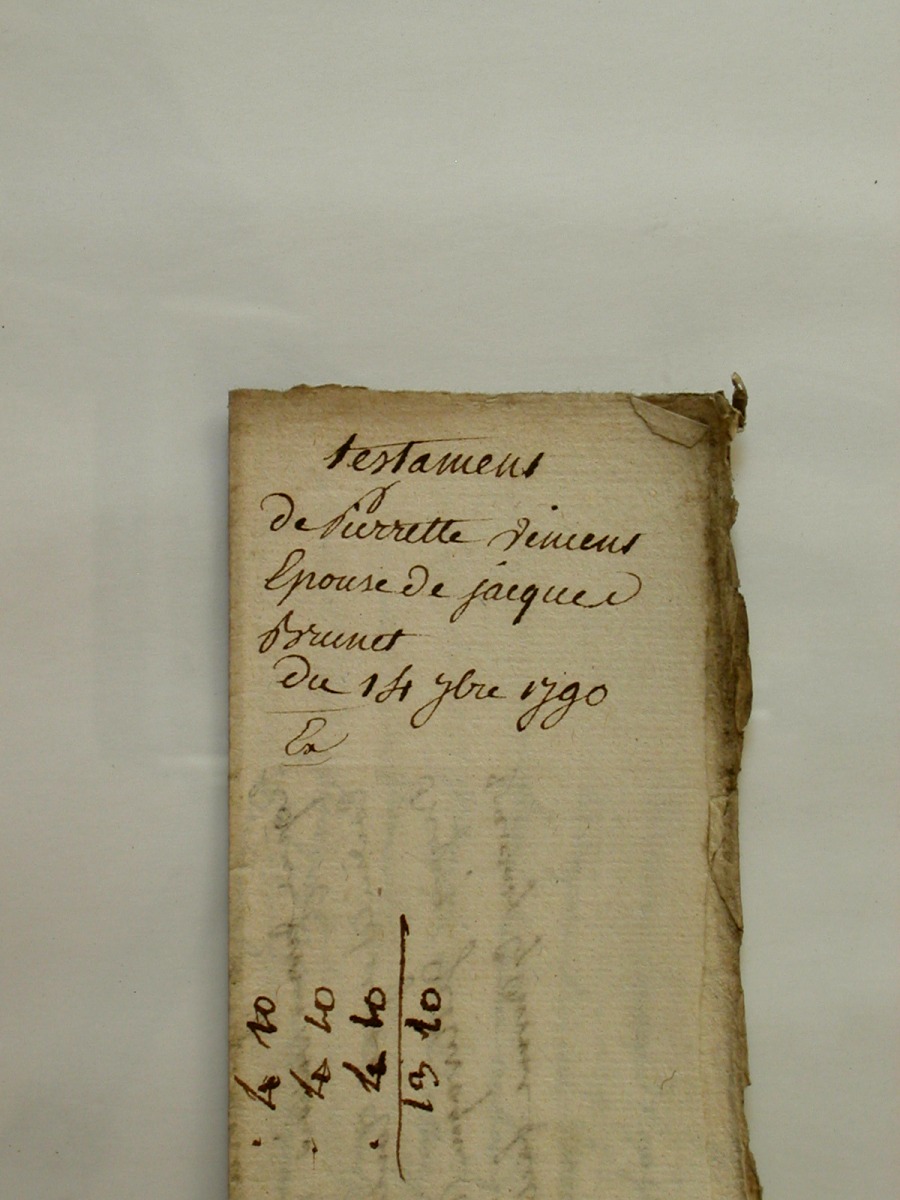 testament
de Pierrette
Epouse de jacques
Brunet
du 14 7bre 1790
Ex
4 10
4 10
4 10
13 10